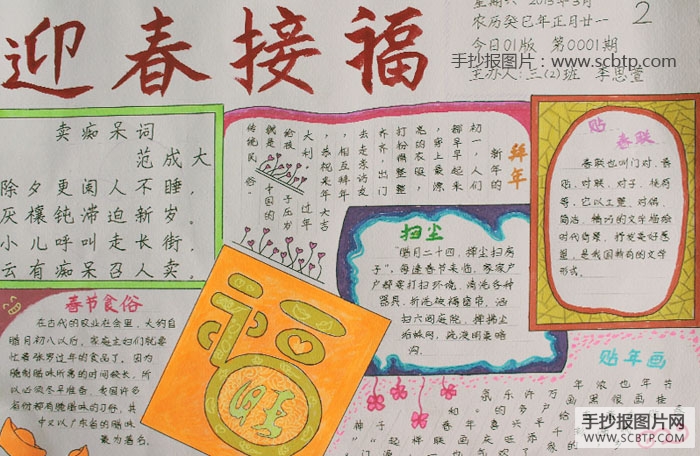 迎春接福
农历癸巳年正月廿一
今日01版 第0001期
手抄报图片：www.scbtp.com
主办人：三(2)班 李思萱
2
卖痴呆词
范成大
除夕更阑人不睡，
灰禳钝滞迫新岁。
小儿呼叫走长街，
云有痴呆召人卖。
拜年
新年的
初一，人们
都早早起来
，穿上最漂
亮的衣服，
打扮得整整
齐齐，出门
去走亲访友
，相互拜年
，恭祝来年大吉
大利
过年
给孩
子压岁
就是
中国的
传统民俗
贴春联
春联也叫门对、春
贴、对联、对子、桃符
等，它以工整、对偶、
简洁、精巧的文字描绘
时代背景，抒发美好愿
望，是我国特有的文学
形式。
扫尘
“腊月二十四，掸尘扫房
子”，每逢春节来临，家家户
户都要打扫环境，清洗各种
器具，拆洗被褥窗帘，洒
扫六闾庭院，掸拂尘
垢蛛网，疏浚明渠暗
沟。
春节食俗
在古代的农业社会里，大约自
腊月初八以后，家庭主妇们就要
忙着张罗过年的食品了。因为
腌制腊味所需的时间较长，所
以必须尽早准备，我国许多
省份都有腌腊味的习俗，其
中又以广东省的腊味
最为著名。
福
旺
贴年画
手抄报图片网
WWW.SCBTP.COM